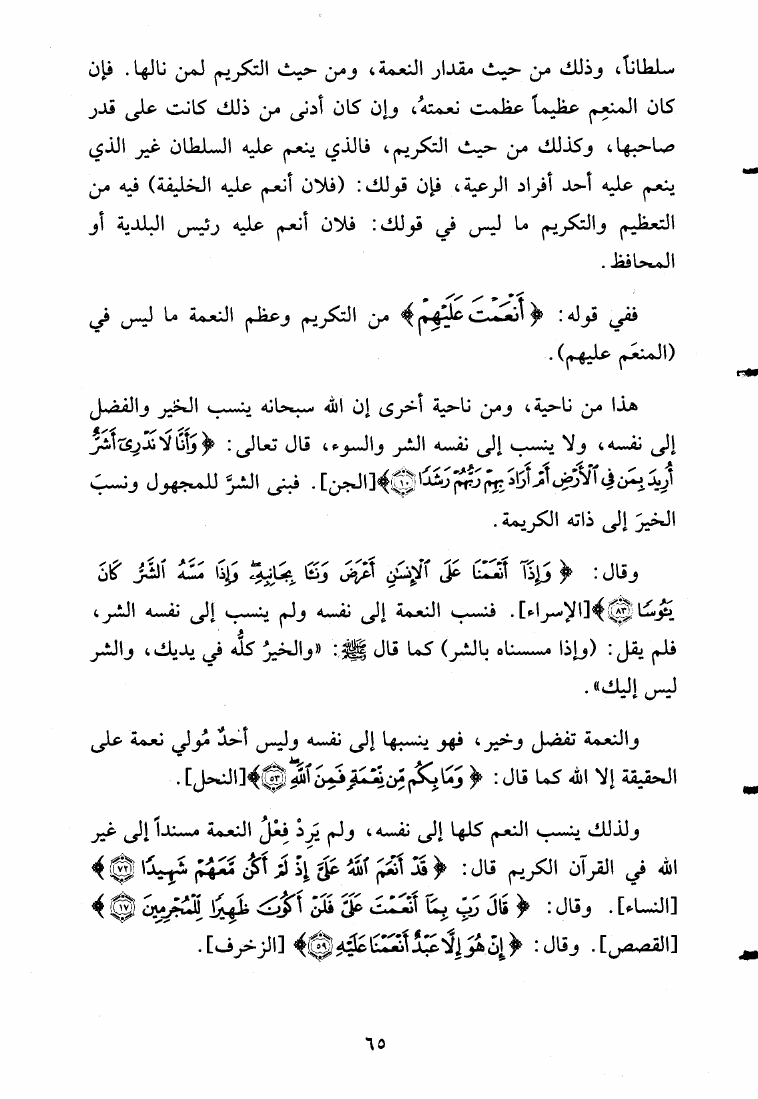 سلطاناً، وذلك من حيث مقدار النعمة، ومن حيث التكريم لمن نالها. فإن
كان المنعِم عظيماً عظمت نعمتهُ، وإن كان أدنى من ذلك كانت على قدر
صاحبها، وكذلك من حيث التكريم، فالذي ينعم عليه السلطان غير الذي
ينعم عليه أحد أفراد الرعية، فإن قولك: (فلان أنعم عليه الخليفة) فيه من
التعظيم والتكريم ما ليس في قولك: فلان أنعم عليه رئيس البلدية أو
المحافظ.
ففي قوله: ﴿أَنْعَمْتَ عَلَيْهِمْ﴾ من التكريم وعظم النعمة ما ليس في
(المنعَم عليهم).
هذا من ناحية، ومن ناحية أخرى إن الله سبحانه ينسب الخير والفضل
إلى نفسه، ولا ينسب إلى نفسه الشر والسوء، قال تعالى: ﴿وَأَنَّا لَا نَدْرِىٓ أَشَرٌّ
أُرِيدَ بِمَن فِى ٱلْأَرْضِ أَمْ أَرَادَ بِهِمْ رَبُّهُمْ رَشَدًا ۝١٠﴾[الجن]. فبنى الشرَّ للمجهول ونسبَ
الخيرَ إلى ذاته الكريمة.
وقال: ﴿وَإِذَآ أَنْعَمْنَا عَلَى ٱلْإِنسَٰنِ أَعْرَضَ وَنَـَٔا بِجَانِبِهِۦ ۖ وَإِذَا مَسَّهُ ٱلشَّرُّ كَانَ
يَـُٔوسًا ۝٨٣﴾[الإسراء]. فنسب النعمة إلى نفسه ولم ينسب إلى نفسه الشر،
فلم يقل: (وإذا مسسناه بالشر) كما قال ﷺ: «والخيرُ كلُّه في يديك، والشر
ليس إليك».
والنعمة تفضل وخير، فهو ينسبها إلى نفسه وليس أحدٌ مُولي نعمة على
الحقيقة إلا الله كما قال: ﴿وَمَا بِكُم مِّن نِّعْمَةٍ فَمِنَ ٱللَّهِ ۖ ۝٥٣﴾[النحل].
ولذلك ينسب النعم كلها إلى نفسه، ولم يَرِدْ فِعْلُ النعمة مسنداً إلى غير
الله في القرآن الكريم قال: ﴿قَدْ أَنْعَمَ ٱللَّهُ عَلَىَّ إِذْ لَمْ أَكُن مَّعَهُمْ شَهِيدًا ۝٧٢﴾
[النساء]. وقال: ﴿قَالَ رَبِّ بِمَآ أَنْعَمْتَ عَلَىَّ فَلَنْ أَكُونَ ظَهِيرًا لِّلْمُجْرِمِينَ ۝١٧﴾
[القصص]. وقال: ﴿إِنْ هُوَ إِلَّا عَبْدٌ أَنْعَمْنَا عَلَيْهِ ۝٥٩﴾ [الزخرف].
٦٥